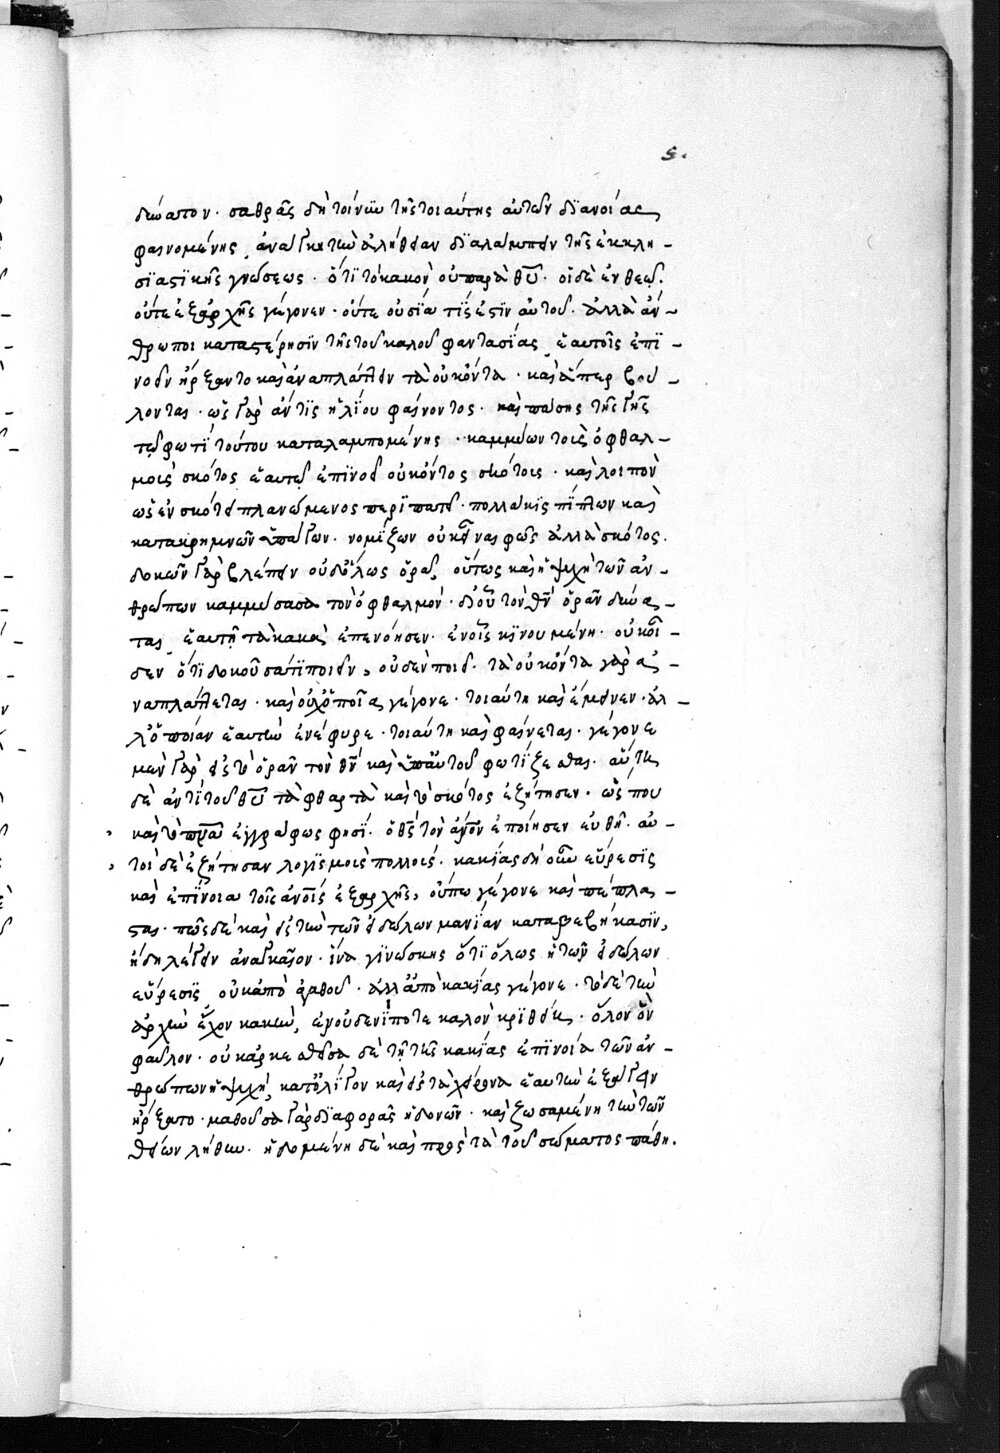 ς.
δύνατον· σαθρᾶς δὴ τοίνυν τῆς τοιαύτης αὐτῶν διανοίας
φαινομένης, ἀνάγκη τὴν ἀλήθειαν διαλάμπειν τῆς ἐκκλη-
σϊαστϊκῆς γνώσεως· ὅτϊ τὸ κακὸν οὐ παρὰ θ̅υ̅· οὐδὲ ἐν θεῶ·
οὔτε ἐξαρχῆς γέγονεν· οὔτε οὐσία τίς ἐστϊν αὐτοῦ· ἀλλὰ ἄν-
θρωποι κατὰ στέρησϊν τῆς τοῦ καλοῦ φαντασΐας, ἑαυτοῖς ἐπϊ-
νοεῖν ἤρξαντο καὶ ἀναπλάττειν τὰ οὐκ ὄντα· καὶ ἅπερ βού-
λονται· ὡς γὰρ ἄν τϊς ἡλΐου φαίνοντος· καὶ πάσης τῆς γῆς
τῷ φωτΐ τούτου καταλαμπομένης· καμμύων τοὺς ὀφθαλ-
μοὺς σκότος ἑαυτῷ ἐπϊνοεῖ οὐκ ὄντος σκότους· καὶ λοιπὸν
ὡς ἐν σκότει πλανώμενος περϊπατεῖ· πολλάκϊς πΐπτων καὶ
κατὰ κρημνῶν ὑπάγων· νομΐζων οὐκ εἶναι φῶς ἀλλὰ σκότος·
δοκῶν γὰρ βλέπειν οὐδ' ὅλως ὁρᾷ, οὕτως καὶ ἡ ψυχὴ τῶν ἀν-
θρώπων καμμύσασα τὸν ὀφθαλμόν· δι' οὗ τὸν θ̅ν̅ ὁρᾶν δύνα-
ται, ἑαυτῇ τὰ κακὰ ἐπενόησεν· ἐν οἷς κϊνουμένη· οὐκ οἶ-
δεν ὅτϊ δοκοῦσά τϊ ποιεῖν, οὐδὲν ποιεῖ· τὰ οὐκ ὄντα γὰρ ἀ-
ναπλάττεται· καὶ οὐχ ὁποία γέγονε· τοιαύτη καὶ ἔμεινεν· ἀλ-
λ' ὁποίαν ἑαυτὴν ἐνέφυρε· τοιαύτη καὶ φαίνεται· γέγονε
μὲν γὰρ εἰς τὸ ὁρᾶν τὸν θ̅ν̅ καὶ ὑπ' αὐτοῦ φωτΐζεσθαι· αὕτη
δὲ ἀντϊ τοῦ θ̅υ̅ τὰ φθαρτὰ καὶ τὸ σκότος ἐζήτησεν· ὥς που
καὶ τὸ πν̅α̅ ἐγγράφως φησΐ· ὁ θ̅ς̅ τὸν ἄν̅ο̅ν̅ ἐποίησεν εὐθῆ· αὐ-
τοὶ δὲ ἐζήτησαν λογϊσμοὺς πολλούς· κακΐας δὴ οὖν εὕρεσϊς
καὶ ἐπΐνοια τοῖς ἀν̅ο̅ις ἐξαρχῆς, οὕπω γέγονε καὶ πέπλα-
σται· πῶς δὲ καὶ εἰς τὴν τῶν εἰδώλων μανΐαν καταβεβήκασϊν,
ἤδη λέγειν ἀναγκαῖον· ἵνα γϊνώσκης ὅτϊ ὅλως ἡ τῶν εἰδώλων
εὕρεσϊς, οὐκ ἀπὸ ἀγαθοῦ· ἀλλ' ἀπὸ κακΐας γέγονε· τὸ δὲ τὴν
ἀρχὴν ἔχον κακὴν, ἐν οὐδενΐ ποτε καλὸν κριθείη· ὅλον ὂν
φαῦλον· οὐκ ἀρκεσθεῖσα δὲ τῇ τῆς κακΐας ἐπϊνοία τῶν ἀν-
θρώπων ἡ ψυχὴ, κατ' ὀλΐγον καὶ εἰς τὰ χείρονα ἑαυτὴν ἐξάγειν
ἤρξατο· μαθοῦσα γὰρ δϊαφορὰς ἡδονῶν· καὶ ζωσαμένη τὴν τῶν
θείων λήθην· ἡδομένη δὲ καὶ πρὸς τὰ τοῦ σώματος πάθη·